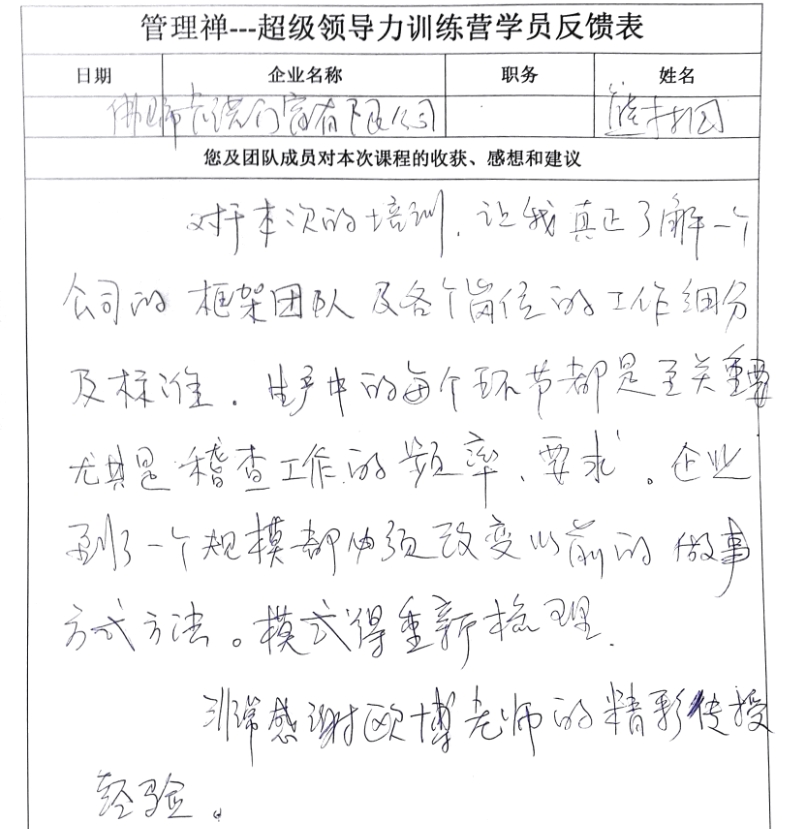 管理禅---超级领导力训练营学员反馈表
日期 企业名称 职务 姓名
有限公司 熊
您及团队成员对本次课程的收获、感想和建议
对于本次的培训，让我真正了解一个
公司的框架团队及各个岗位的工作细分
及标准．生产中的每个环节都是至关重要
尤其是稽查工作的频率、要求。企业
到了一个规模都必须改变以前的做事
方式方法。模式得重新梳理．
非常感谢欧博老师的精彩传授
经验。